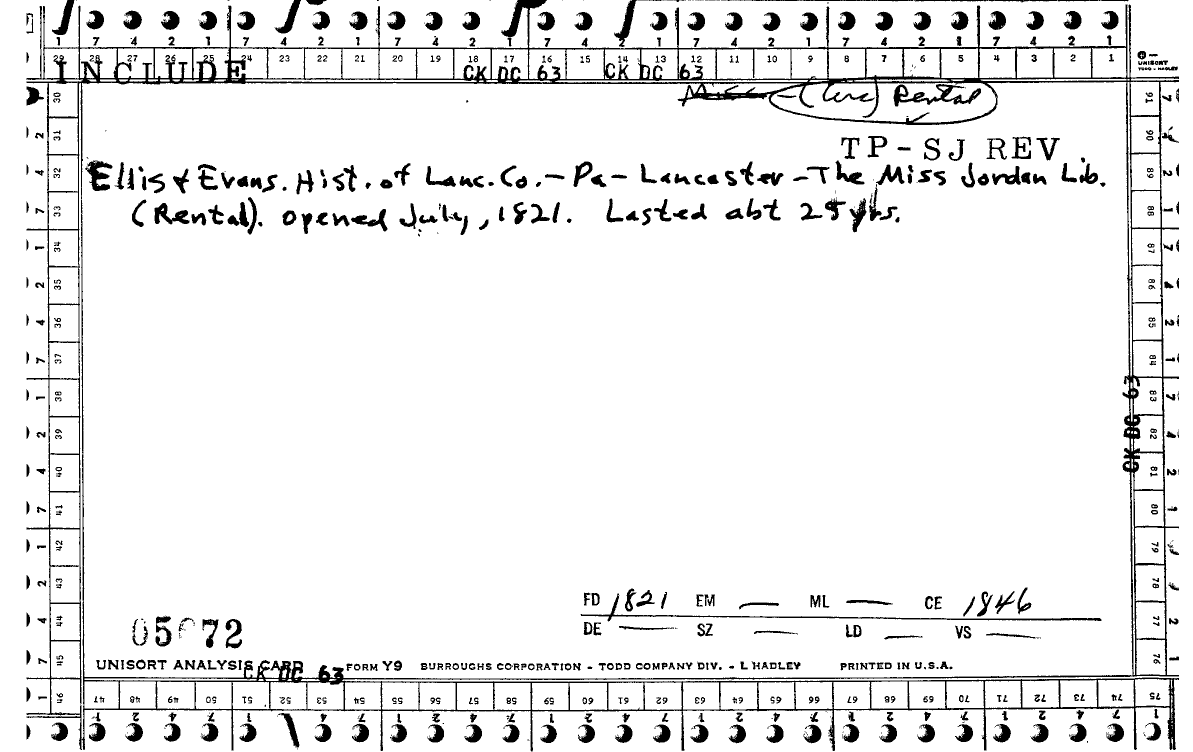 1 7 4 2 1 7 4 2 1 7 4 2 1 7 4 2 1 7 4 2 1 7 4 2 1 7 4 2 1
29 28 27 26 25 24 23 22 21 20 19 18 17 16 15 14 13 12 11 10 9 8 7 6 5 4 3 2 1
UNISORT
TODD - HADLEY
INCLUDE
CK DC 63 CK DC 63
(Circ) Rental
TP-SJ REV
Ellis & Evans. Hist. of Lanc. Co. - Pa - Lancaster - The Miss Jordan Lib.
(Rental). opened July, 1821. Lasted abt 25 yrs.
30 31 32 33 34 35 36 37 38 39 40 41 42 43 44 45 46
91 90 89 88 87 86 85 84 83 82 81 80 79 78 77 76 75
CK DC 63
FD 1821 EM — ML — CE 1846
DE — SZ — LD — VS —
UNISORT ANALYSIS CARD FORM Y9 BURROUGHS CORPORATION - TODD COMPANY DIV. - L HADLEY PRINTED IN U.S.A.
CK DC 63
47 48 49 50 51 52 53 54 55 56 57 58 59 60 61 62 63 64 65 66 67 68 69 70 71 72 73 74